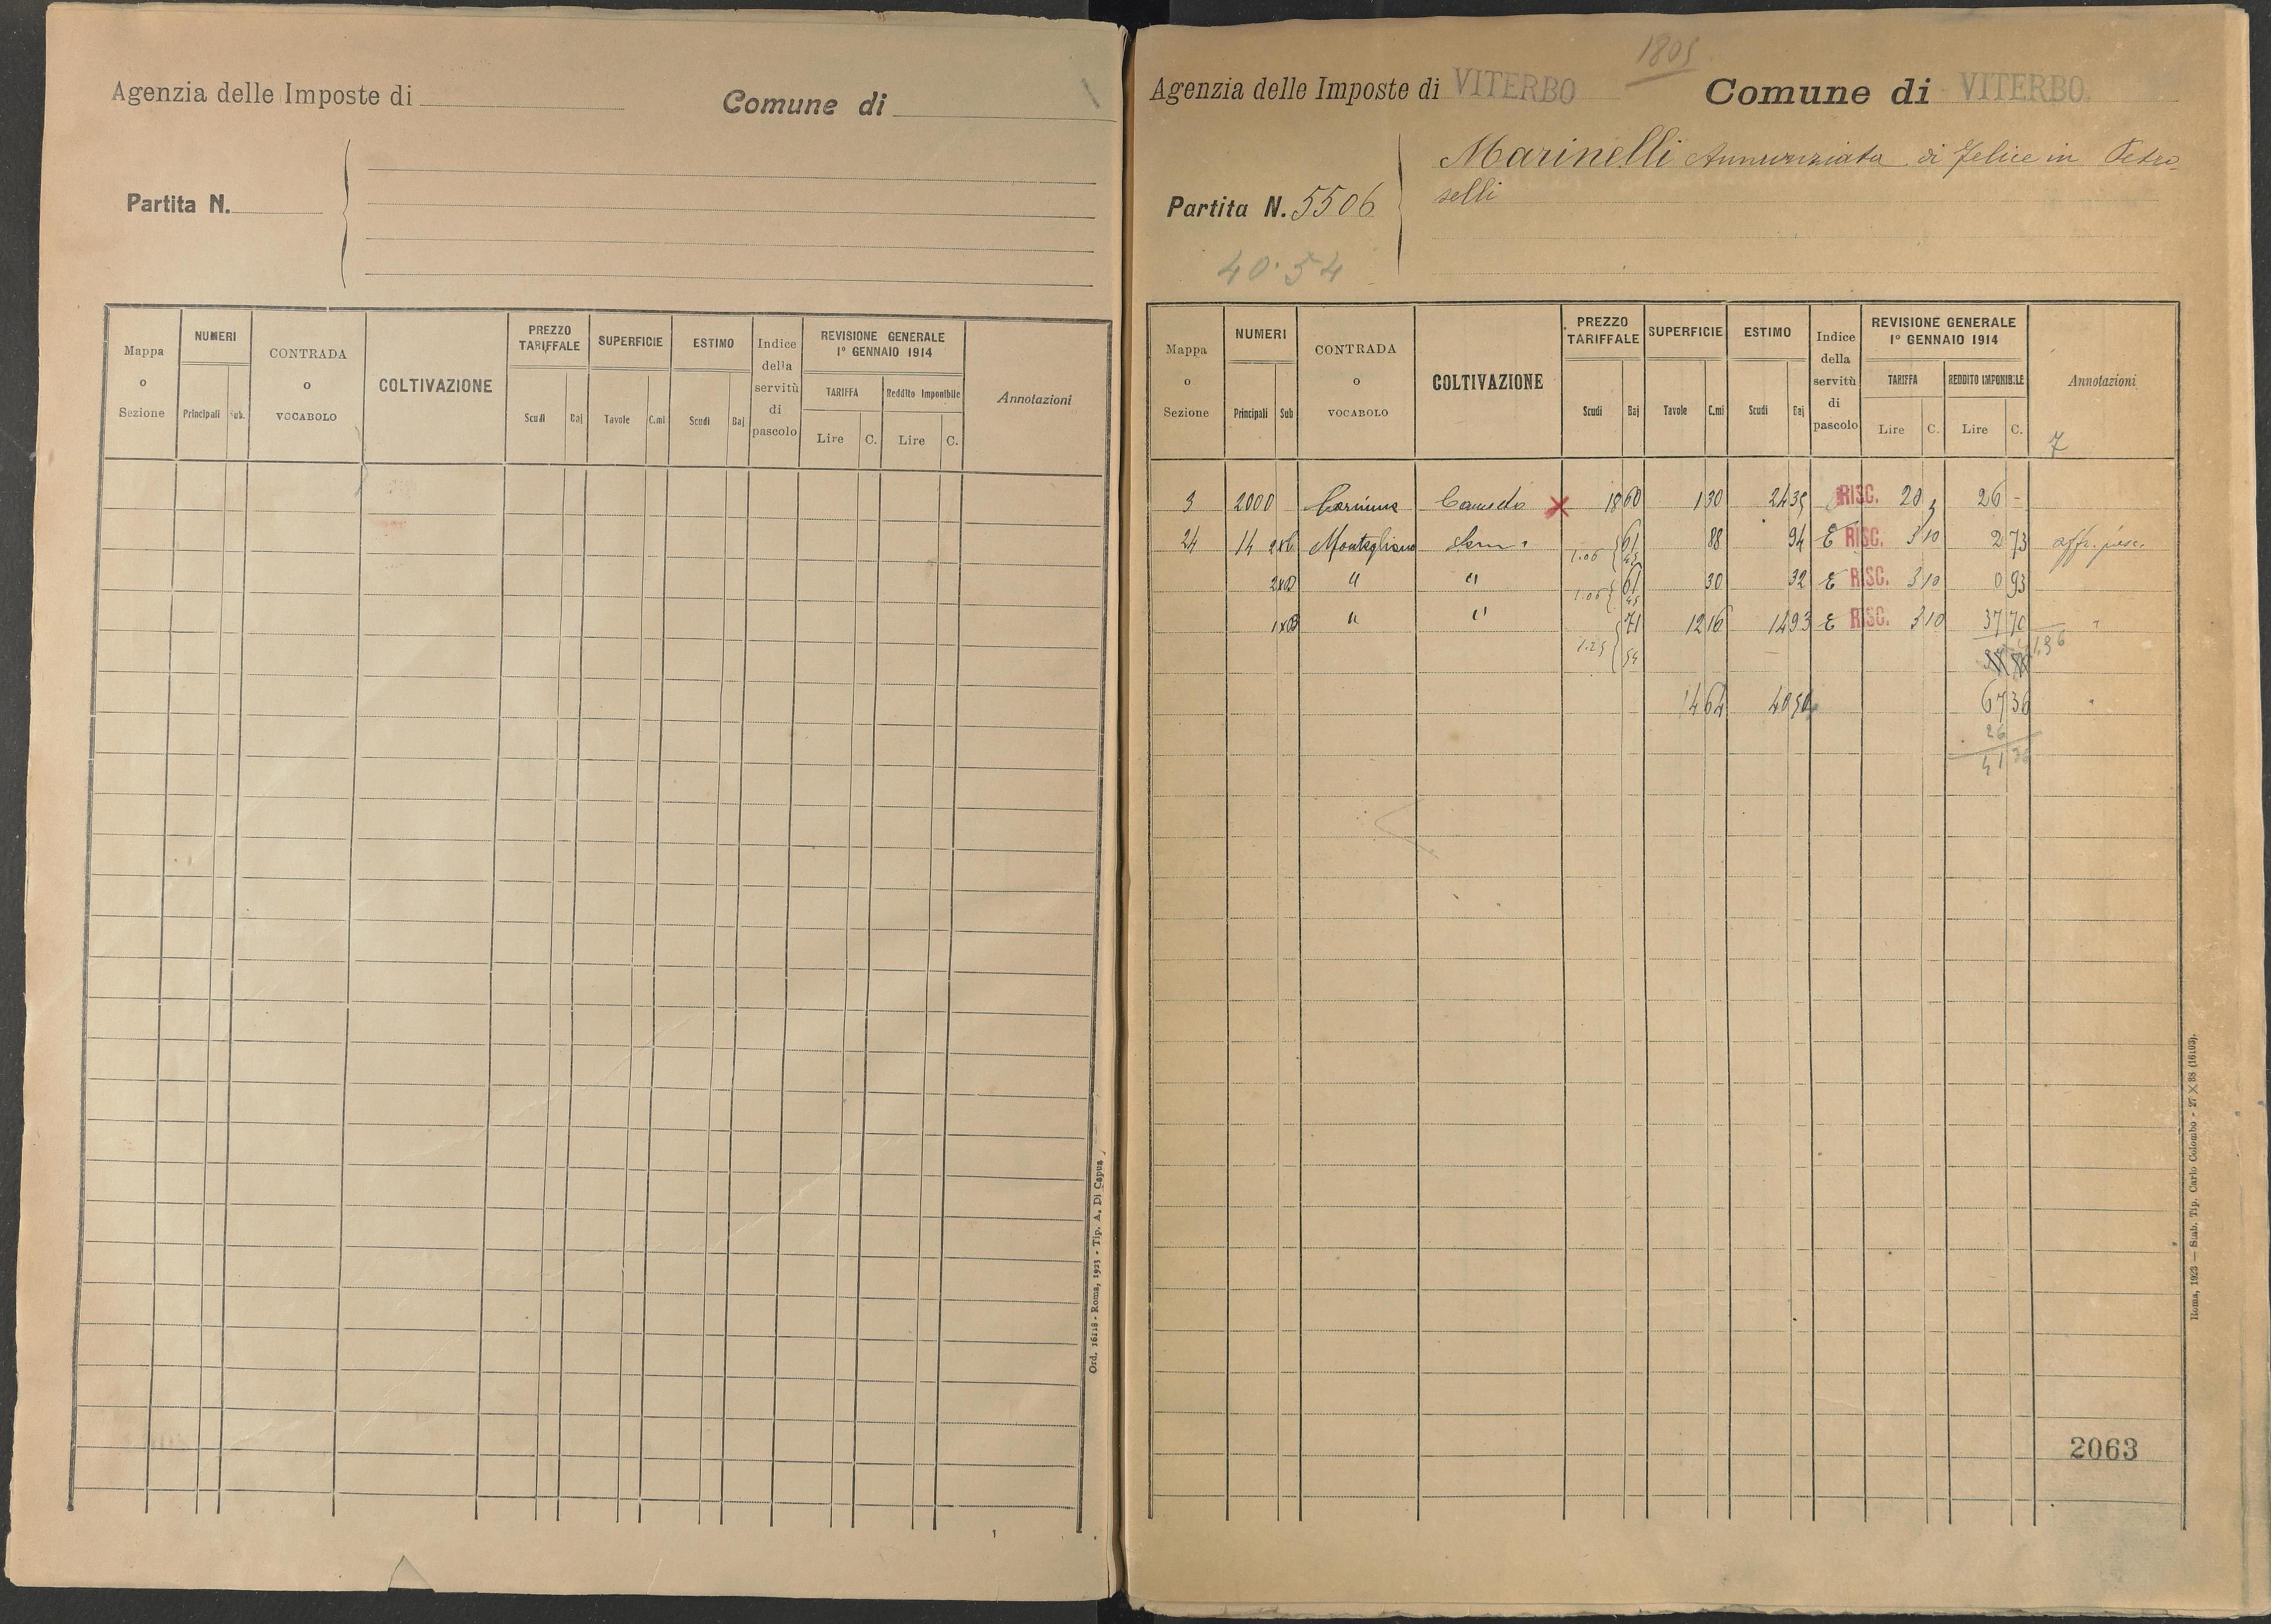 Agenzia delle Imposte di
Comune di
Partita N.
Mappa o Sezione
NUMERI
Principali Sub.
CONTRADA o VOCABOLO
COLTIVAZIONE
PREZZO TARIFFALE
Scudi Baj
SUPERFICIE
Tavole C.mi
ESTIMO
Scudi Baj
Indice della servitù di pascolo
REVISIONE GENERALE
1º GENNAIO 1914
TARIFFA Reddito Imponibile
Lire C. Lire C.
Annotazioni
Ord. 16118 - Roma, 1923 - Tip. A. Di Capua
1805
Agenzia delle Imposte di VITERBO Comune di VITERBO.
Marinelli Annunziata di Felice in Petro-
selli
Partita N. 5506
40.54
Mappa o Sezione
NUMERI
Principali Sub
CONTRADA o VOCABOLO
COLTIVAZIONE
PREZZO TARIFFALE
Scudi Baj
SUPERFICIE
Tavole C.mi
ESTIMO
Scudi Baj
Indice della servitù di pascolo
REVISIONE GENERALE
1º GENNAIO 1914
TARIFFA REDDITO IMPONIBILE
Lire C. Lire C.
Annotazioni
7
3 2000 18 60 1 30 24 35 RISC. 20 26 -
24 14 61 88 94 E RISC. 3 10 2 73
1.06 45
" " 61 30 32 E RISC. 3 10 0 93
1.06 45
" " 71 12 16 14 93 E RISC. 3 10 37 70 "
1.25 54 41.36
14 64 40 54 67 36
26
41 36
2063
Roma, 1923 — Stab. Tip. Carlo Colombo - 27 × 38 (16103).